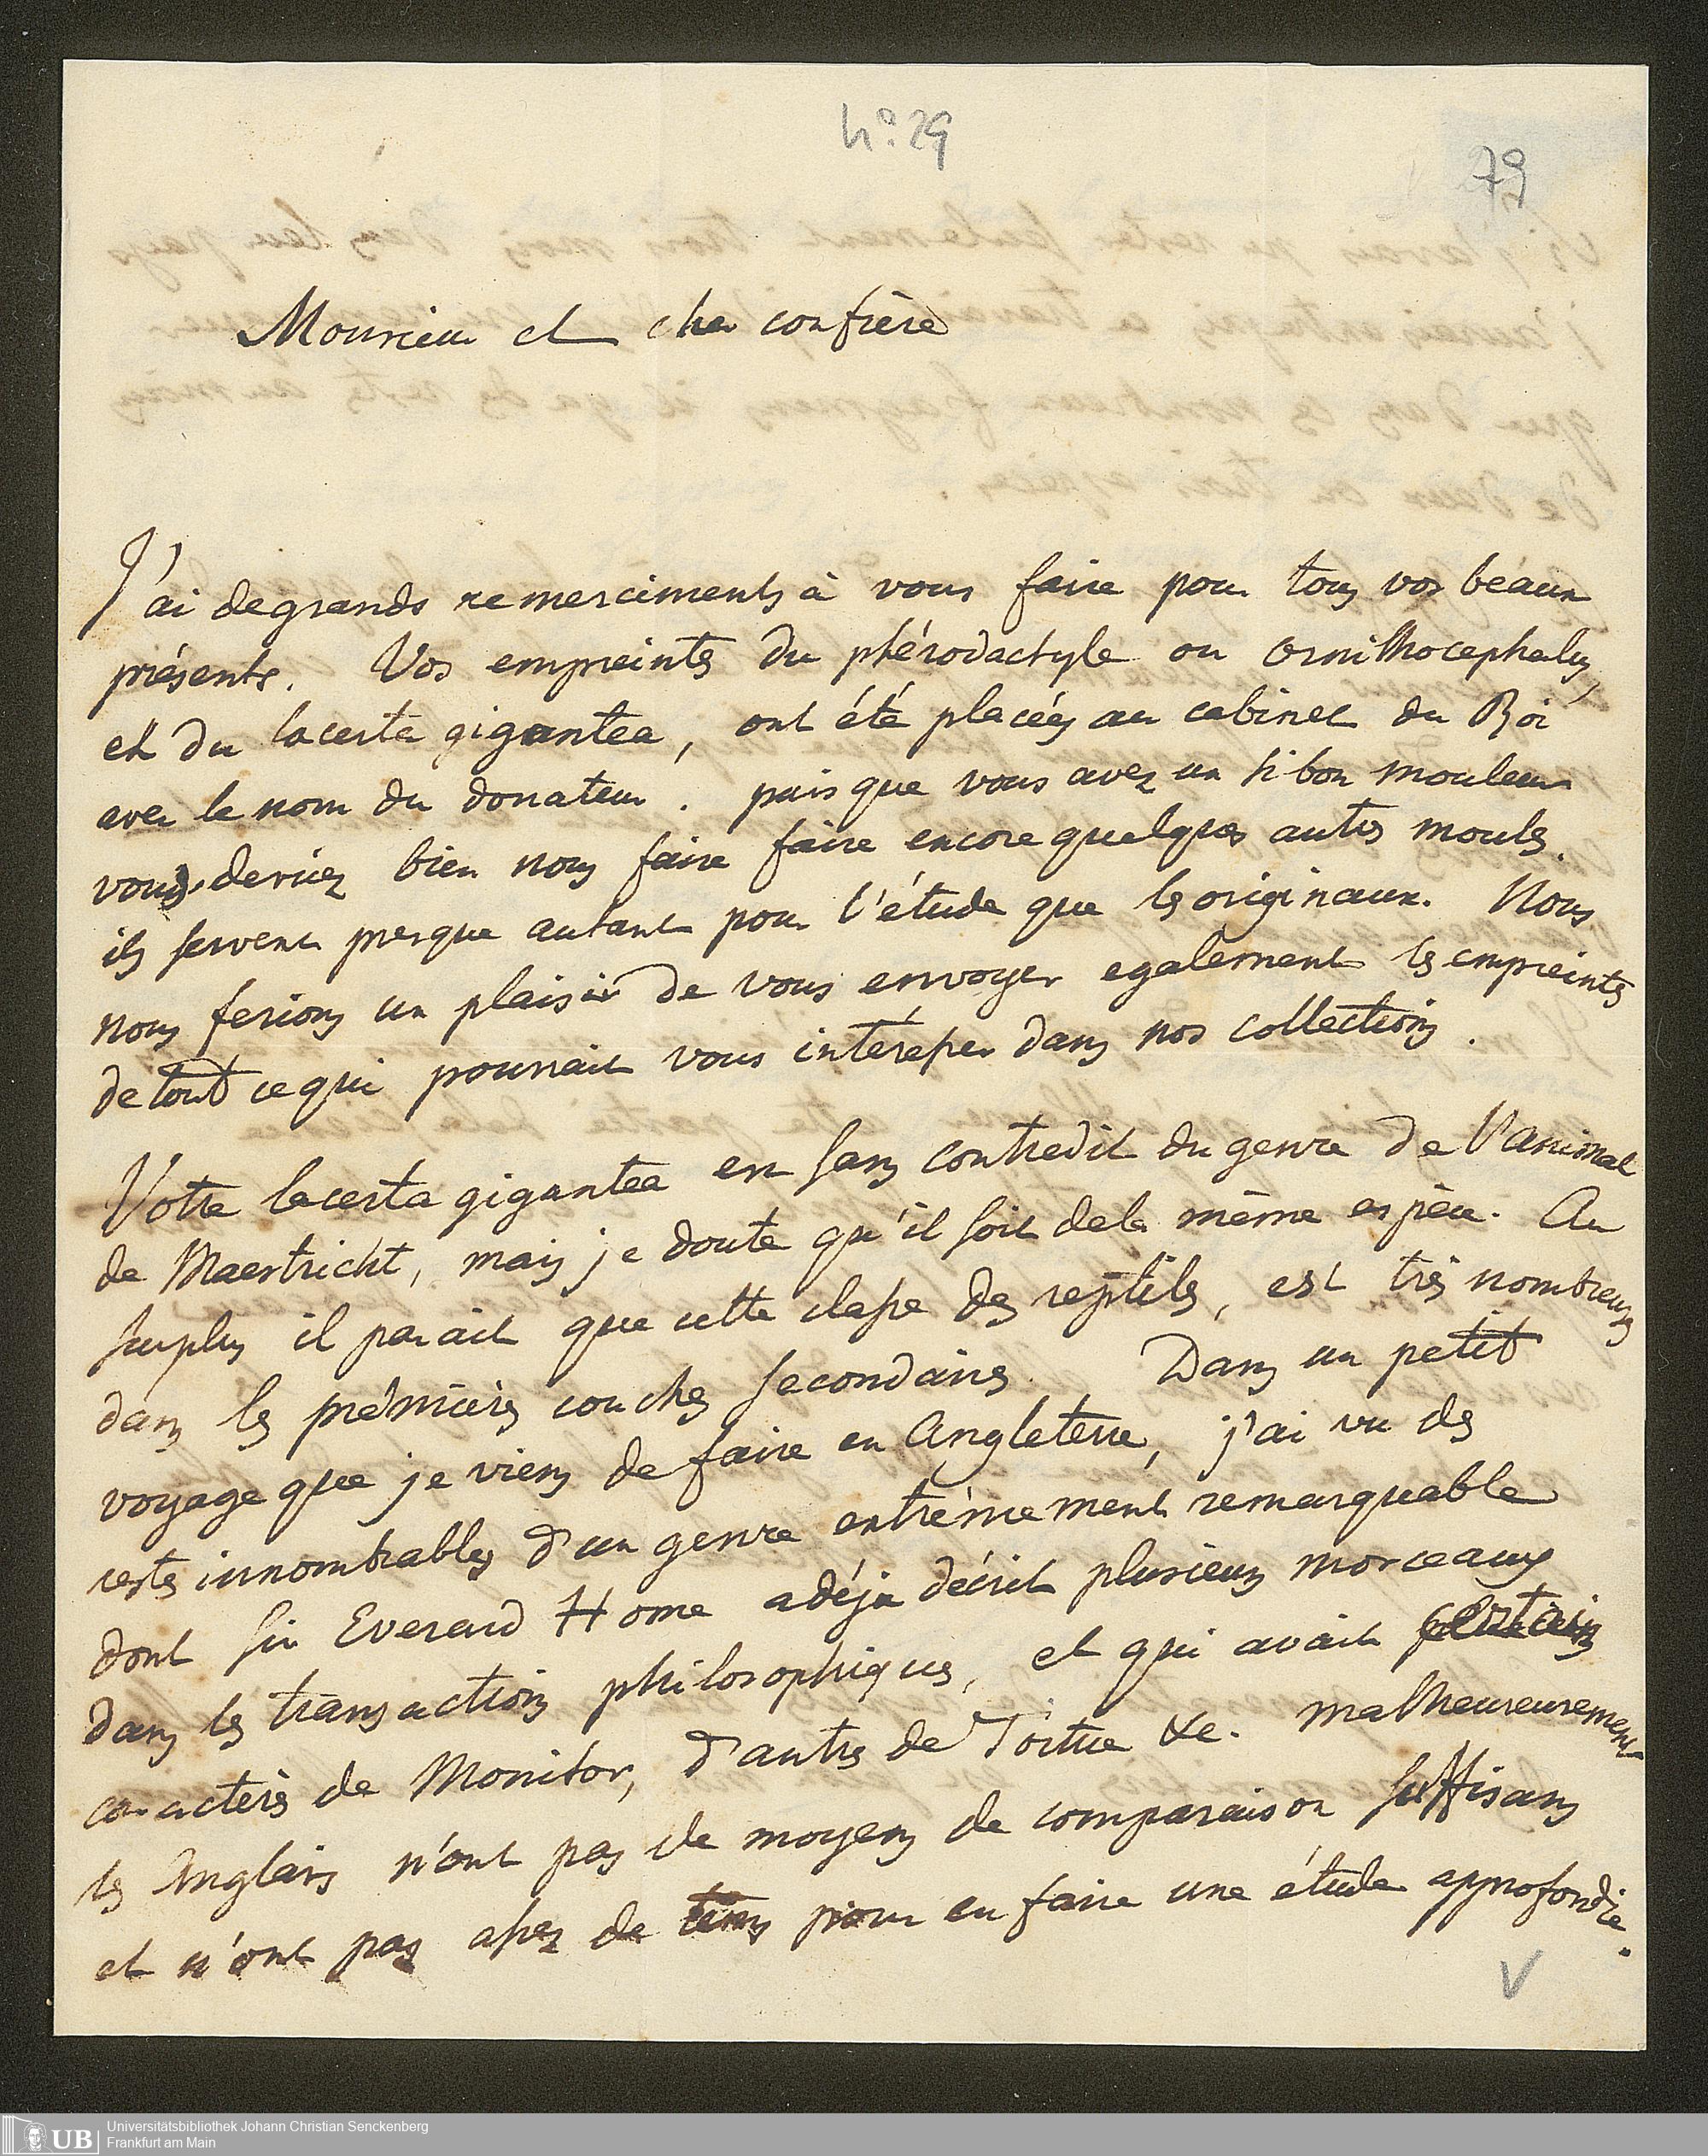 n.º 29
79
Monsieur et cher confrère
J'ai de grands remerciments à vous faire pour tous vos beaux
présents. Vos empreintes du ptérodactyle ou ornithocephalus,
et du lacerta gigantea, ont été placées au cabinet du Roi
avec le nom du donateur. puisque vous avez un si bon mouleur
vous devriez bien nous faire faire encore quelques autres moules.
ils servent presque autant pour l'étude que les originaux. Nous
nous ferions un plaisir de vous envoyer egalement les empreintes
de tout ce qui pourrait vous intéresser dans nos collections.
Votre lacerta gigantea est sans contredit du genre de l'animal
de Maestricht, mais je doute qu'il soit de la même espèce. Au
surplus il parait que cette classe des reptiles, est très nombreuse
dans les premières couches secondaires. Dans un petit
voyage que je viens de faire en Angleterre, j'ai vu des
restes innombrables d'un genre extrêmement remarquable
dont Sir Everard Home a déja décrit plusieurs morceaux
dans les transactions philosophiques, et qui avait certains
caractères de Monitor, d'autres de Tortue &c. malheureusement
les Anglais n'ont pas de moyens de comparaison suffisans
et n'ont pas assez de tems pour en faire une étude approfondie.
V
UB
Universitätsbibliothek Johann Christian Senckenberg
Frankfurt am Main